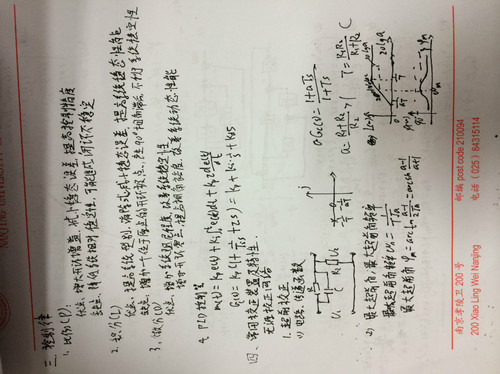 NANJING UNIVERSITY
三. 控制律
1. 比例(P):
优点: 增大开环增益, 减小稳态误差, 提高控制精度
缺点: 降低系统相对稳定性, 可能造成闭环不稳定
2. 积分(I)
优点: 提高系统型别, 消除或减小稳态误差, 提高系统稳态性能
缺点: 增加一个位于原点的开环极点, 90°相角滞后, 不利于系统稳定性
3. 微分(D)
优点: 增加系统阻尼程度, 改善系统稳定性
增加开环零点, 提高相角裕度, 改善系统动态性能
4. PID控制
m(t) = kp e(t) + ki∫e(t)dt + kp τ de(t)/dt
Gc(s) = kp(1 + 1/(Tis) + τs) = kp + ki·1/s + kd s
四. 常用校正装置及特性.
无源校正网络
1. 超前校正
1) 电路、传递函数
j
R1
U1 C R2 U2
-1/T -1/aT
aGc(s) = (1+aTs)/(1+Ts)
a = (R1+R2)/R2 > 1 T = R1R2/(R1+R2) C
2) 最大超前角, 最大超前角频率
最大超前角频率 ωm = 1/(T√a)
最大超前角 φm = arctan (a-1)/(2√a) = arcsin (a-1)/(a+1)
20lga
φm
ωm
南京孝陵卫 200 号 邮编 post code 210094
200 Xiao Ling Wei Nanjing 电话 (025) 84315114